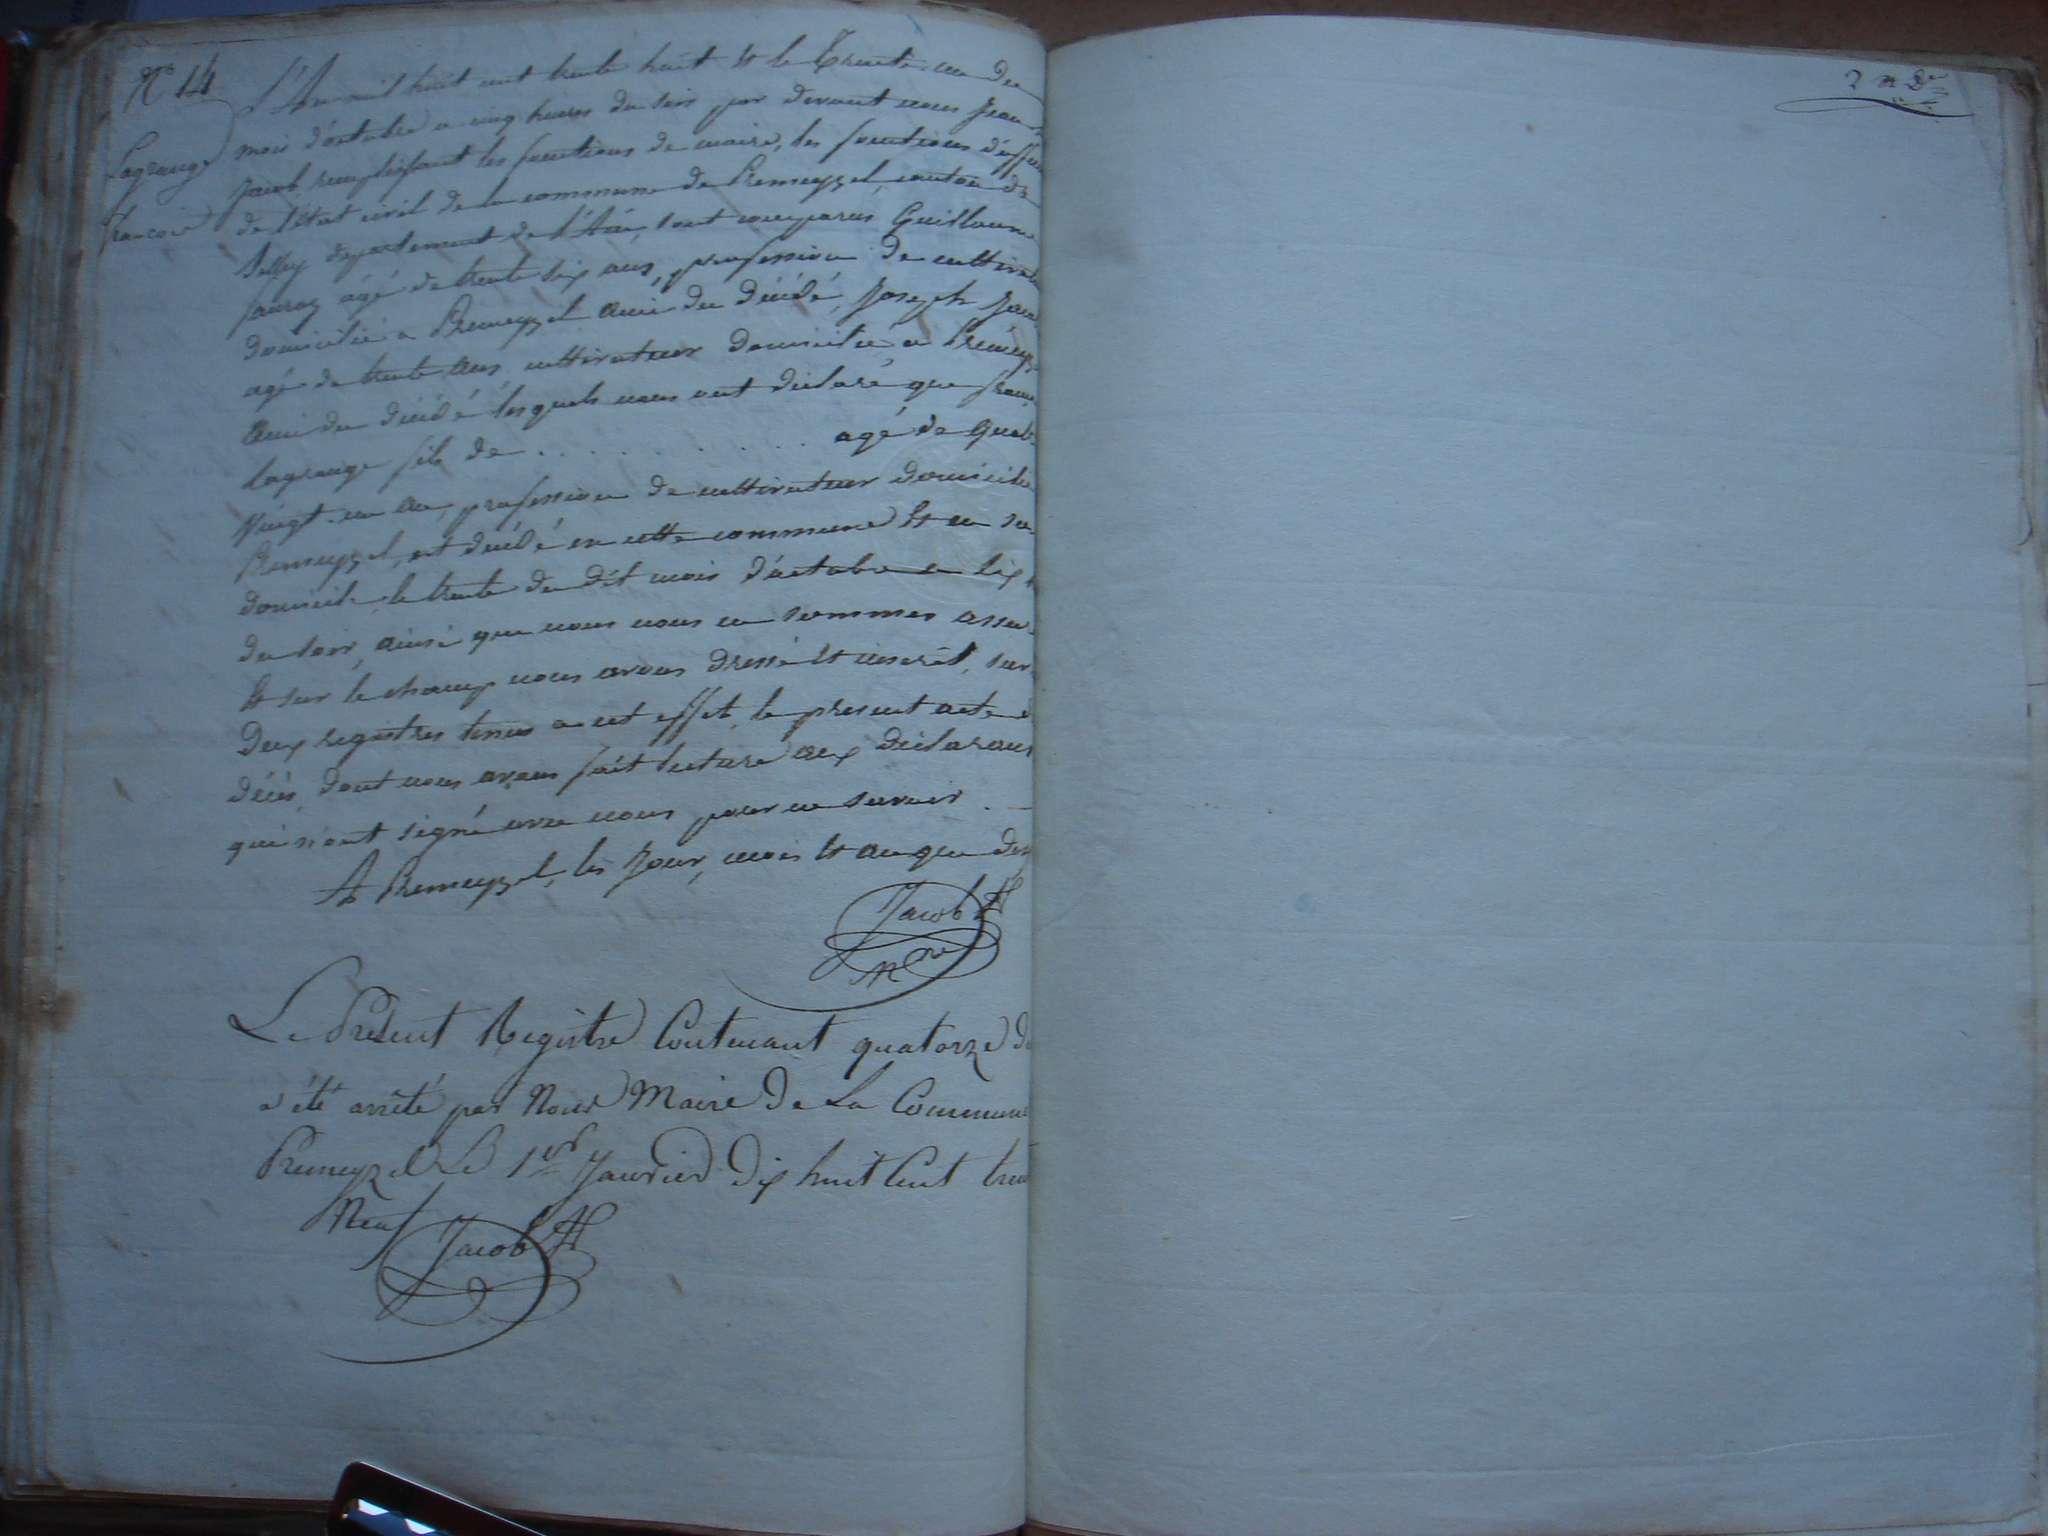 N° 14
Lagrange
francois
L'An mil huit cent trente huit et le Trente un du
mois d'octobre a cinq heures du soir par devant nous Jean
Jacob remplissant les fonctions de maire, les fonctions d'offi
de l'état civil de la commune de Premeyzel, canton de
Belley departement de l'Ain, sont comparus Guillaume
agé de trente six ans, profession de cultivat
domicilié a Premeyzel ami du décédé, Joseph
agé de trente ans cultivateur domicilié a Prémeyz
ami du décédé lesquels nous ont déclaré que franc
lagrange fils de . . . . . . . . . agé de Quat
Vingt-un an, profession de cultivateur domicilié
Premeyzel, est décédé en cette commune et en so
domicile le trente du dit mois d'octobre a six
du soir, ainsi que nous nous en sommes assu
et sur le champ nous avons dressé et inscrit, sur
Deux registres tenus a cet effet, le present acte d
décès, dont nous avons fait lecture aux déclarans
qui n'ont signé avec nous pour ne savoir . —
A Premeyzel, les Jour, mois et an que des
Jacob
Mre
Le Présent Registre Contenant quatorze d
a été arrêté par Nous Maire De La Commune
Premeyzel Le 1er Janvier Dix huit Cent tren
Neuf
Jacob